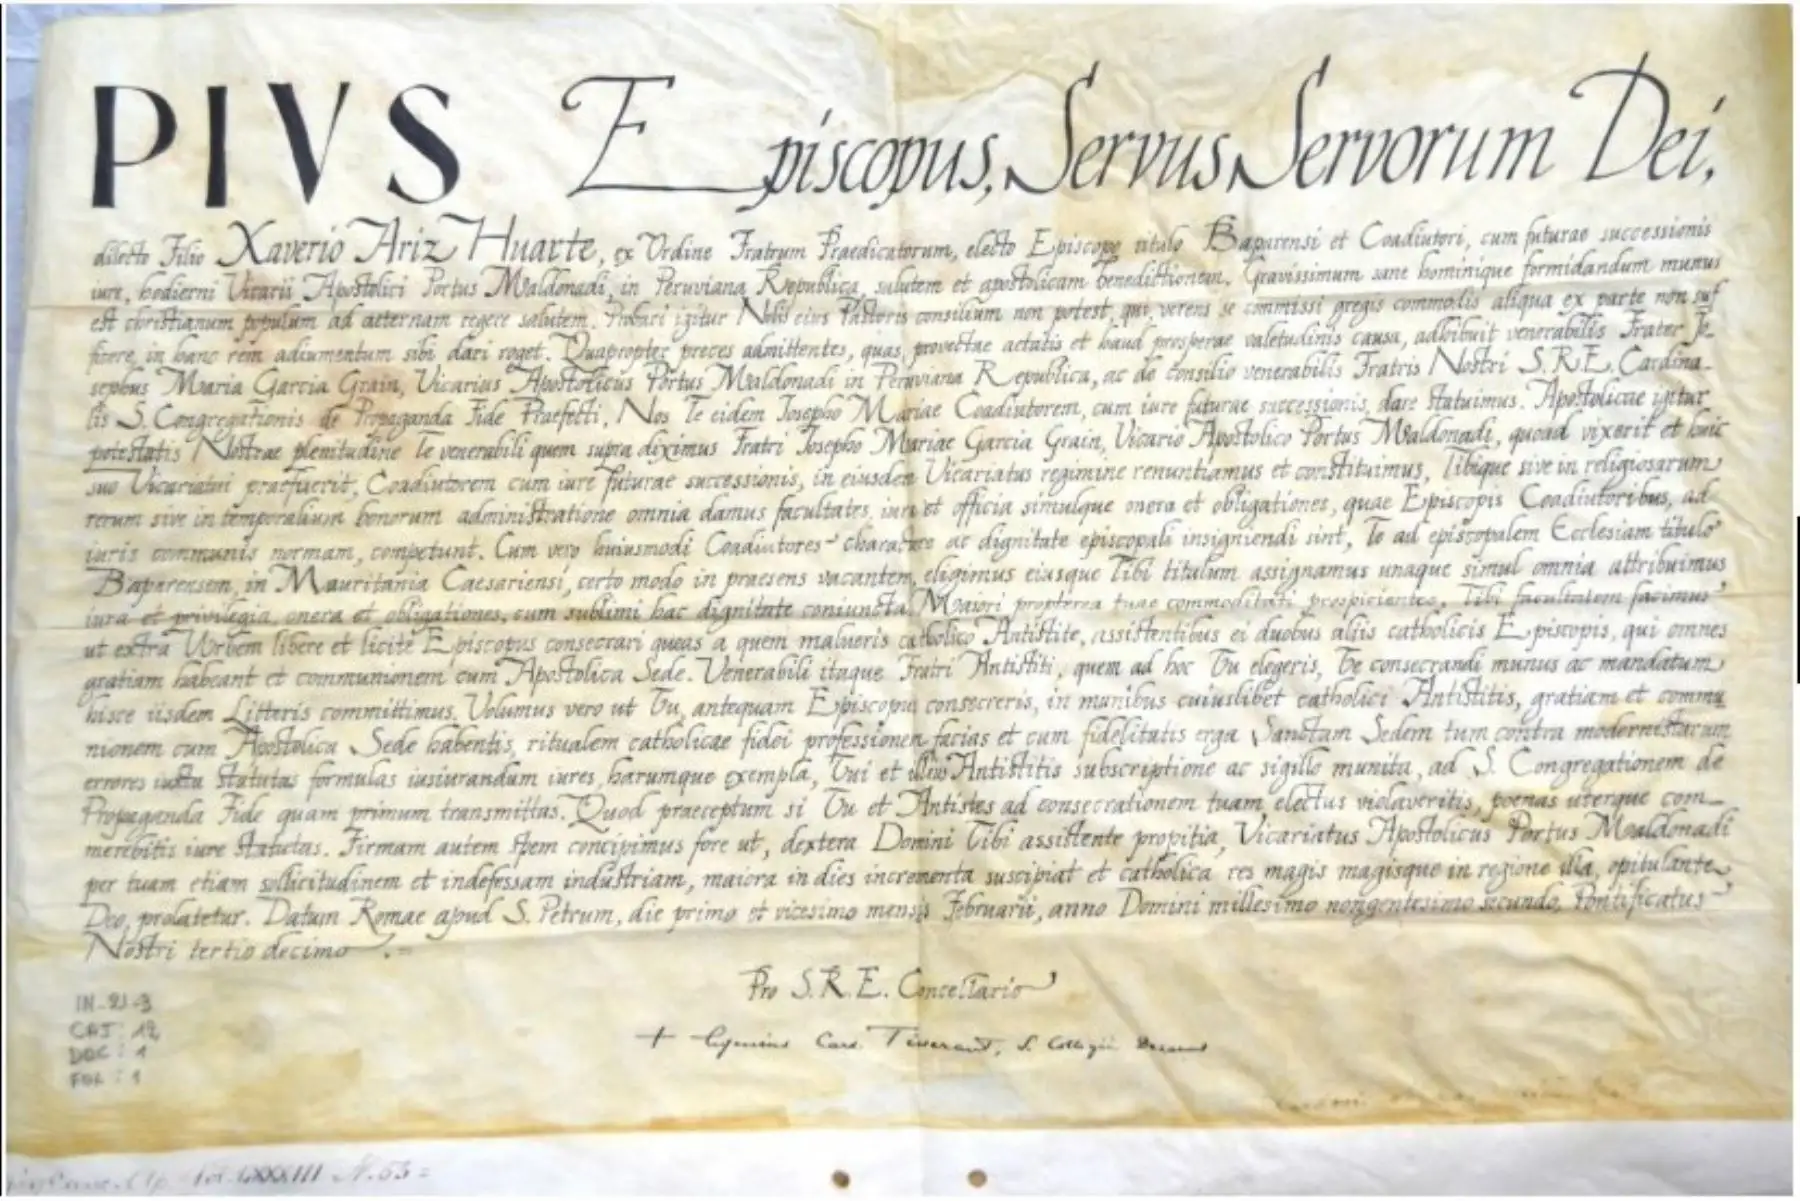 PIVS Episcopus, Servus Servorum Dei,
dilecto Filio Xaverio Ariz Huarte, ex Ordine Fratrum Praedicatorum, electo Episcopo titulo Baparensi et Coadiutori, cum futurae successionis
iure, hodierni Vicarii Apostolici Portus Maldonadi, in Peruviana Republica, salutem et apostolicam benedictionem. Gravissimum sane hominique formidandum munus
est christianum populum ad aeternam regere salutem. Probari igitur Nobis eius Pastoris consilium non potest, qui, verens se commissi gregis commodis aliqua ex parte non suf
ficere, in hanc rem adiumentum sibi dari roget. Quapropter preces admittentes, quas, provectae aetatis et haud prosperae valetudinis causa, adhibuit venerabilis Frater Jo
sephus Maria Garcia Grain, Vicarius Apostolicus Portus Maldonadi in Peruviana Republica, ac de consilio venerabilis Fratris Nostri S.R.E. Cardina-
lis S. Congregationis de Propaganda Fide Praefecti, Nos Te eidem Josepho Mariae Coadiutorem, cum iure futurae successionis, dare statuimus. Apostolicae igitur
potestatis Nostrae plenitudine Te venerabili quem supra diximus Fratri Josepho Mariae Garcia Grain, Vicario Apostolico Portus Maldonadi, quoad vixerit et huic
suo Vicariatui praefuerit, Coadiutorem cum iure futurae successionis, in eiusdem Vicariatus regimine renuntiamus et constituimus, Tibique sive in religiosarum
rerum sive in temporalium bonorum administratione omnia damus facultates, iura et officia simulque onera et obligationes, quae Episcopis Coadiutoribus, ad
iuris communis normam, competunt. Cum vero huiusmodi Coadiutores charactere ac dignitate episcopali insigniendi sint, Te ad episcopalem Ecclesiam titulo
Baparensem, in Mauritania Caesariensi, certo modo in praesens vacantem, eligimus eiusque Tibi titulum assignamus unaque simul omnia attribuimus
iura et privilegia, onera et obligationes, cum sublimi hac dignitate coniuncta. Maiori propterea tuae commoditati prospicientes, Tibi facultatem facimus
ut extra Urbem libere et licite Episcopus consecrari queas a quem malueris catholico Antistite, assistentibus ei duobus aliis catholicis Episcopis, qui omnes
gratiam habeant et communionem cum Apostolica Sede. Venerabili itaque Fratri Antistiti, quem ad hoc Tu elegeris, Te consecrandi munus ac mandatum
hisce iisdem Litteris committimus. Volumus vero ut Tu, antequam Episcopus consecreris, in manibus cuiuslibet catholici Antistitis, gratiam et commu
nionem cum Apostolica Sede habentis, ritualem catholicae fidei professionem facias et cum fidelitatis erga Sanctam Sedem tum contra modernistarum
errores iuxta statutas formulas iusiurandum iures, harumque exempla, Tui et illius Antistitis subscriptione ac sigillo munita, ad S. Congregationem de
Propaganda Fide quam primum transmittas. Quod praeceptum si Tu et Antistes ad consecrationem tuam electus violaveritis, poenas uterque com-
merebitis iure statutas. Firmam autem spem concipimus fore ut, dextera Domini Tibi assistente propitia, Vicariatus Apostolicus Portus Maldonadi
per tuam etiam sollicitudinem et indefessam industriam, maiora in dies incrementa suscipiat et catholica res magis magisque in regione illa, opitulante
Deo, prolatetur. Datum Romae apud S. Petrum, die primo et vicesimo mensis Februarii, anno Domini millesimo nongentesimo secundo, Pontificatus
Nostri tertio decimo.=
Pro S.R.E. Cancellario
+ Eugenius Card. Tisserant, S. Collegii Decanus
IN-21-3
CAJ: 12
DOC: 1
FOL: 1
Vol. LXXXIII N. 63 =